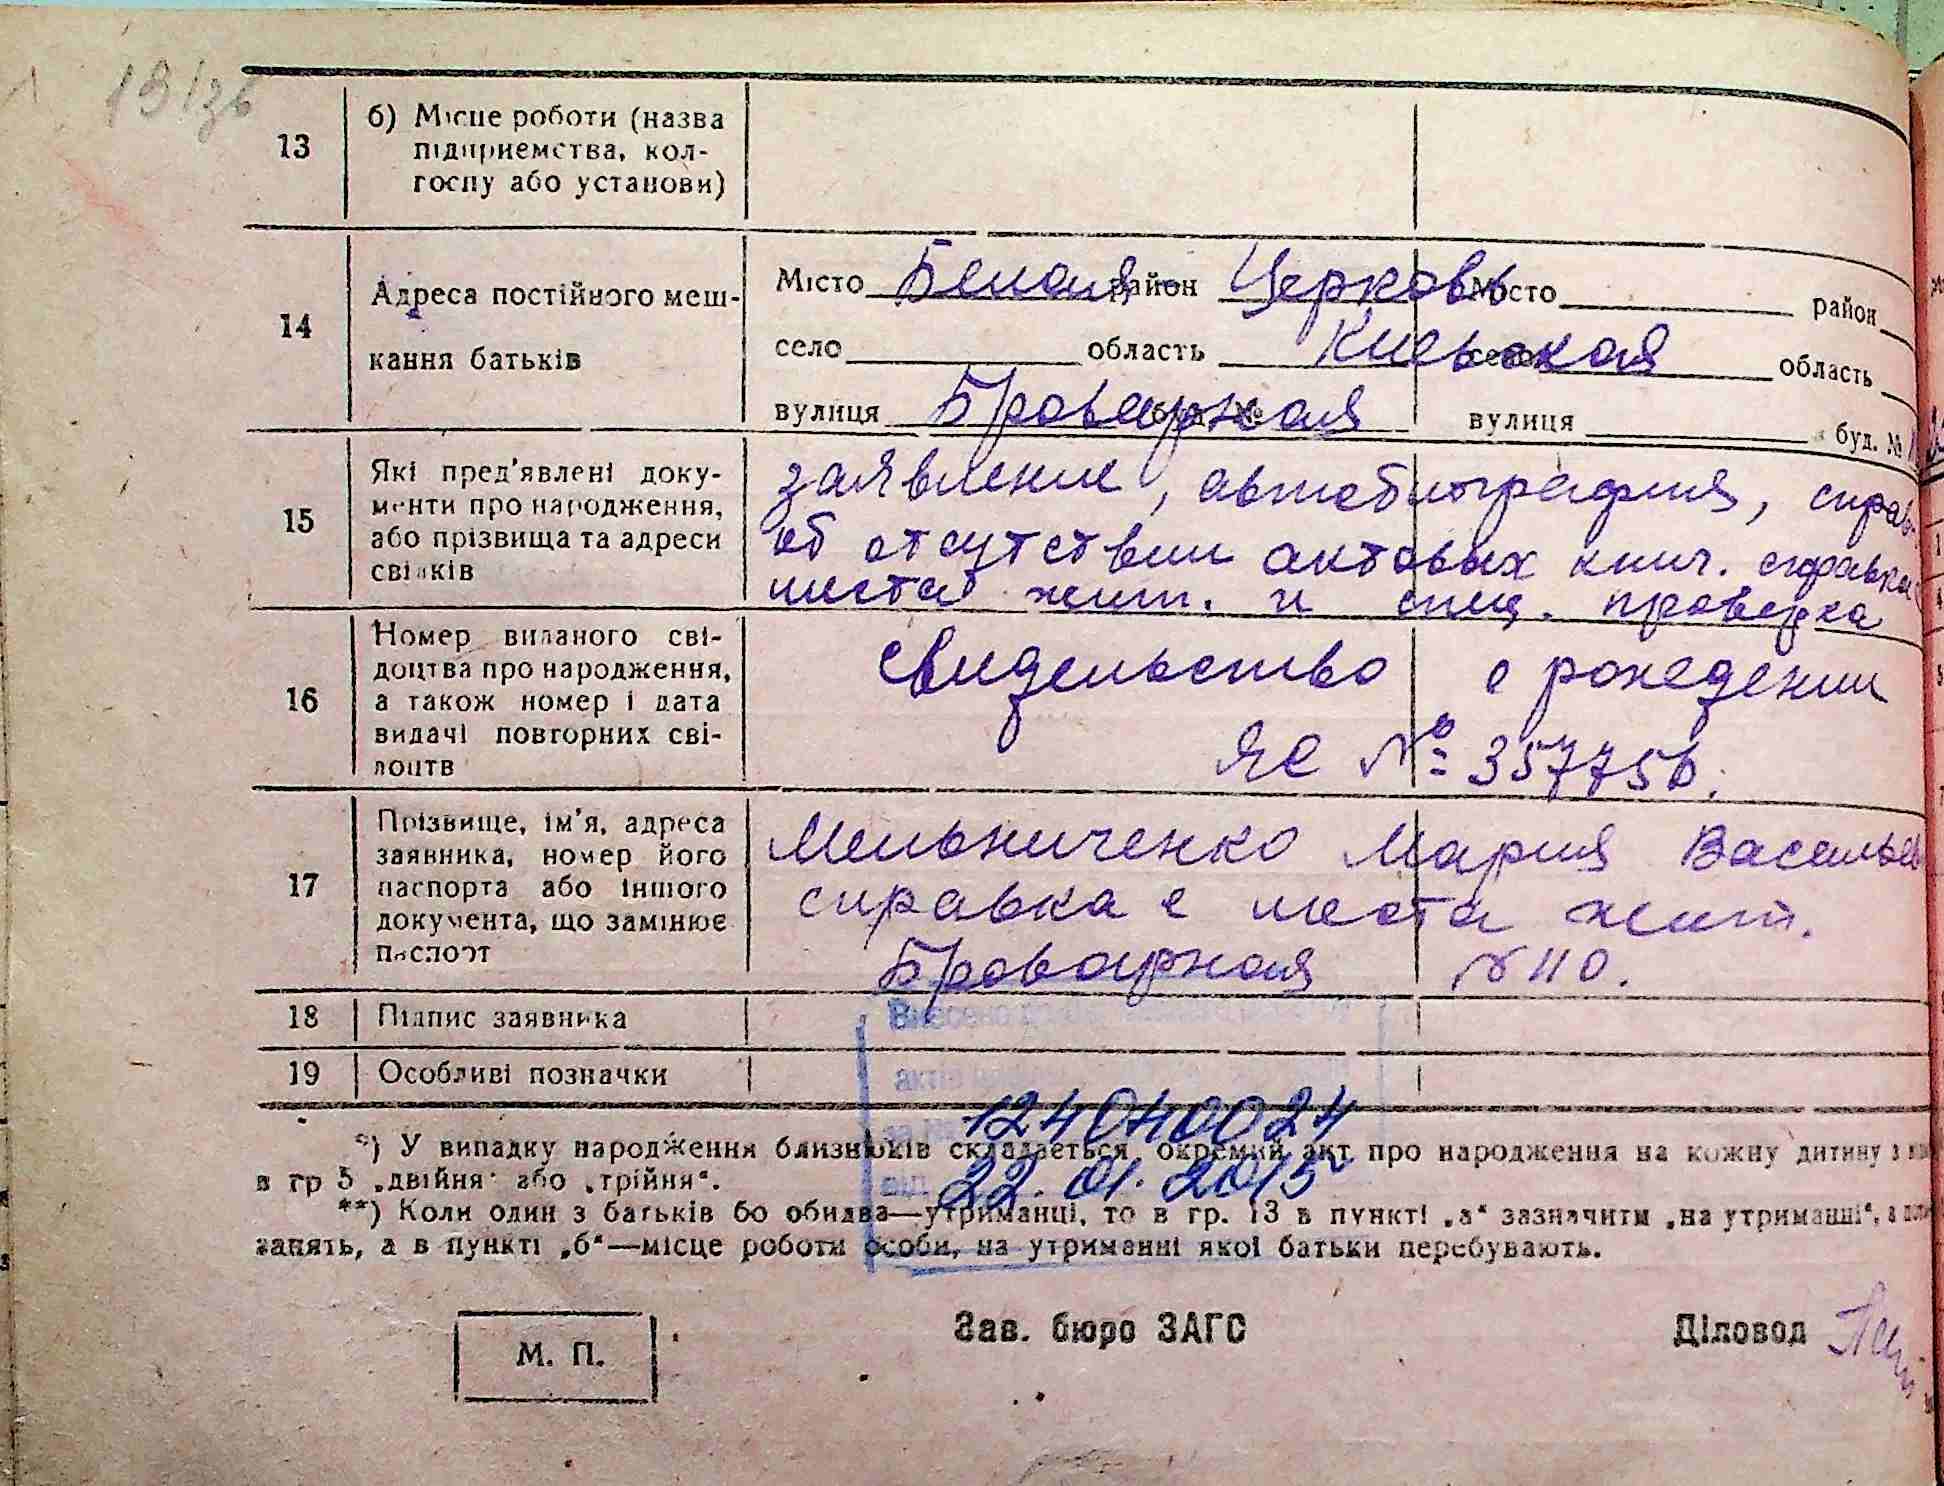 13 б) Місце роботи (назва
підприємства, кол-
госпу або установи)
14 Адреса постійного меш-
кання батьків
Місто Белая район Церковь Місто район
село область Киевская село область
вулиця Броварная буд. № вулиця буд. №
15 Які пред'явлені доку-
менти про народження,
або прізвища та адреси
свідків
заявление, автобиография, справ
об отсутствии актовых книг. справка
места жит. и спец. проверка
16 Номер виданого сві-
доцтва про народження,
а також номер і дата
видачі повторних сві-
доцтв
Свидельство о рождении
ЯС № 357756.
17 Прізвище, ім'я, адреса
заявника, номер його
паспорта або іншого
документа, що замінює
паспорт
Мельниченко Мария Васильев
справка с места жит.
Броварная № 110.
18 Підпис заявника
19 Особливі позначки
Внесено
актів
за №
124040024
від 22.01.2015
*) У випадку народження близнюків складається окремий акт про народження на кожну дитину з
в гр 5 „двійня" або „трійня".
**) Коли один з батьків бо обидва—утриманці, то в гр. 13 в пункті „а" зазначити „на утриманні", а
занять, а в пункті „б"—місце роботи особи, на утриманні якої батьки перебувають.
М. П. Зав. бюро ЗАГС Діловод